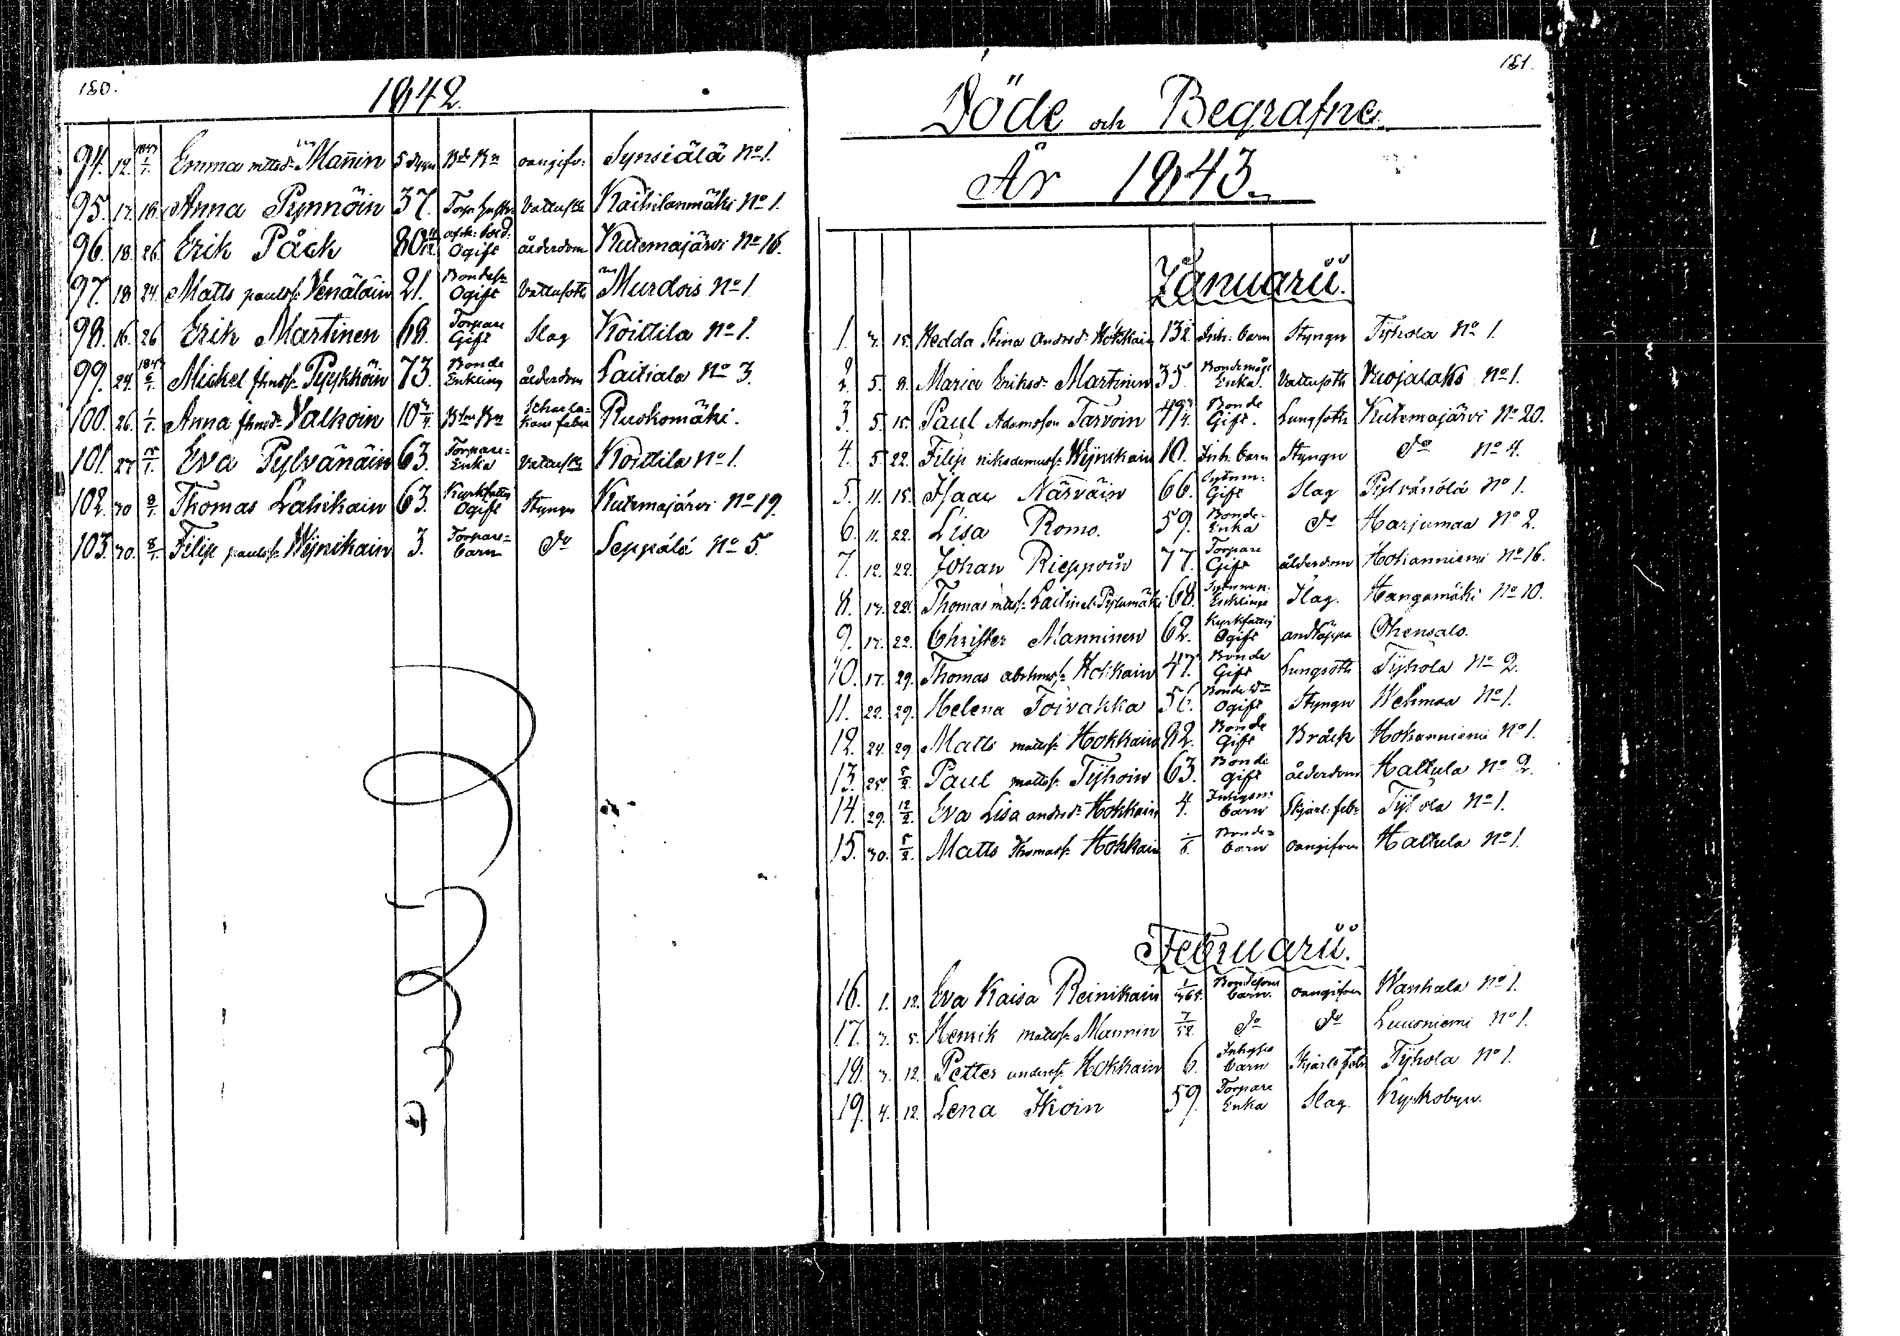 180.
1842.
94. 12. 1843 1/1. Emma mattsd: Mañin 5 dygn Bde Bn oangifv: Synsiälä No 1.
95. 17. 18. Anna Pynnöin 37. Torp hustr Vattusot Kaihilanmäki No 1.
96. 18. 26. Erik Påck 80 Ogift ålderdom Kutemajärvi No 16.
97. 18. 24. Matts paulss: Venäläin 21. Bondess: Ogift Vattusoth Murdois No 1.
98. 16. 26 Erik Martinen 68. Torpare Gift Slag Koittila No 1.
99. 24. 1843 Michel Pyykköin 73. Bonde Enkling ålderdom Laitiala No 3.
100. 26. 1/1. Anna Valkoin 10 Scharlakans feber Ruokomäki.
101. 27 Eva Pylvänäin 63. Torpare= Enka Vattusot Koittila No 1.
102. 30 8/1. Thomas Lahikain 63. Kyrkfattig Ogift Styngn Kutemajärvi No 19.
103. 30. 8/1. Filip paulss: Wijnikain 3. Torpare= barn do Seppälä No 5.
181.
Döde och Begrafne.
År 1843.
Januarii.
1. 3. 15. Hedda Stina Andersd: Hokkain Inh: barn Styngn Tyhola No 1.
2. 5. 8. Maria Eriksd: Martinen 35. Bondemåg Enka. Vattusoth Vuojalaks No 1.
3. 5. 15. Paul Adamsson Tarvoin 49 Bonde Gift. Lungsoth Kutemajärvi No 20.
4. 5 22. Filip nikodemuss: Wijnikain 10. Inh: barn Styngn do No 4.
5. 11. 15. Isaac Närväin 66. Gift Slag Pylvänälä No 1.
6. 11. 22. Lisa Romo. 59. Bonde- Enka do Harjumaa No 2.
7. 12. 22. Johan Rieppoin 77. Torpare Gift ålderdom Hokanniemi No 16.
8. 17. 22. Thomas matss: Laitinel. Pylumäki 68. Enkling Slag. Hangamäki No 10.
9. 17. 22. Christer Manninen 62. Kyrkfattig Ogift andtäppa Ohensalo.
10. 17. 29. Thomas abrhmss: Hokkain 47. Bonde Gift Lungsoth Tyhola No 2.
11. 22. 29. Helena Toivakka 56. Bonde Dr Ogift Styngn Wehmaa No 1.
12. 24. 29. Matts mattss: Hokkain 82. Bonde Gift Bråck Hokanniemi No 1.
13. 25. 5/2. Paul mattss: Tyhoin 63. Bonde gift ålderdom Hallula No 2.
14. 29. 12/2. Eva Lisa andersd: Hokkain 4. Inhysn: barn Skjarl: febr Tyhola No 1.
15. 30. 5/2. Matts Thomass: Hokkain Bonde= barn oangifven Hallula No 1.
Februarii.
16. 1. 12. Eva Kaisa Reinikain 1/365. Bondeson barn. oangifven Wanhala No 1.
17. 3. 5. Henrik mattss: Mannin 7/52. do do Luusniemi No 1.
18. 3. 12. Petter anderss: Hokkain 6. Inhyses barn Skjarl: feb: Tyhola No 1.
19. 4. 12. Lena Ikoin 59. Torpare Enka Slag. Kyrkobyn.